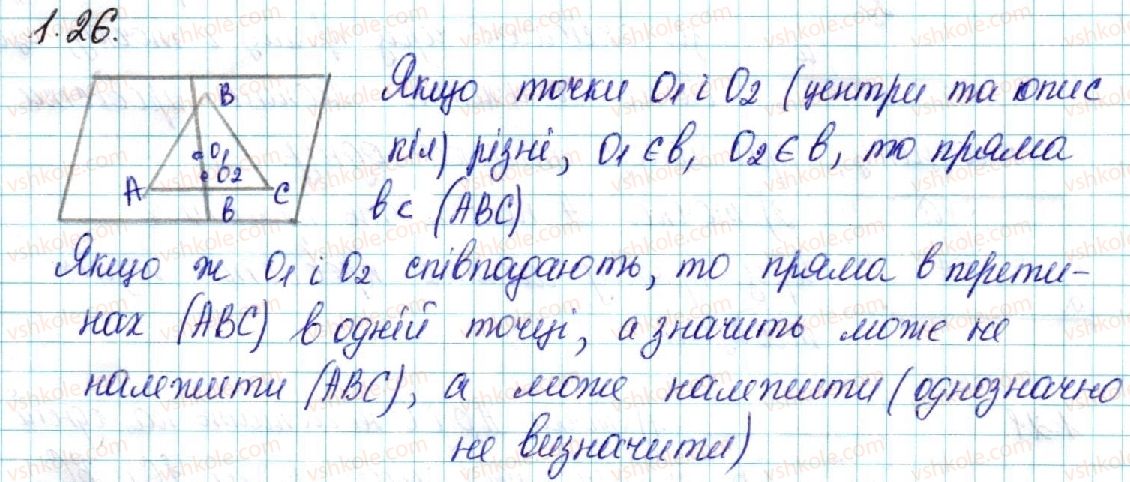 1.26.
B
O1
O2
A
C
в
Якщо точки O1 і O2 (центри та опис
кіл) різні, O1 є в, O2 є в, то пряма
в с (ABC)
Якщо ж O1 і O2 співпадають, то пряма в перети-
нах (ABC) в одній точці, а значить може не
належити (ABC), а може належити (однозначно
не визначити)